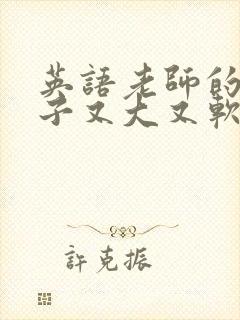 英語老師的
子又大又軟
許克振